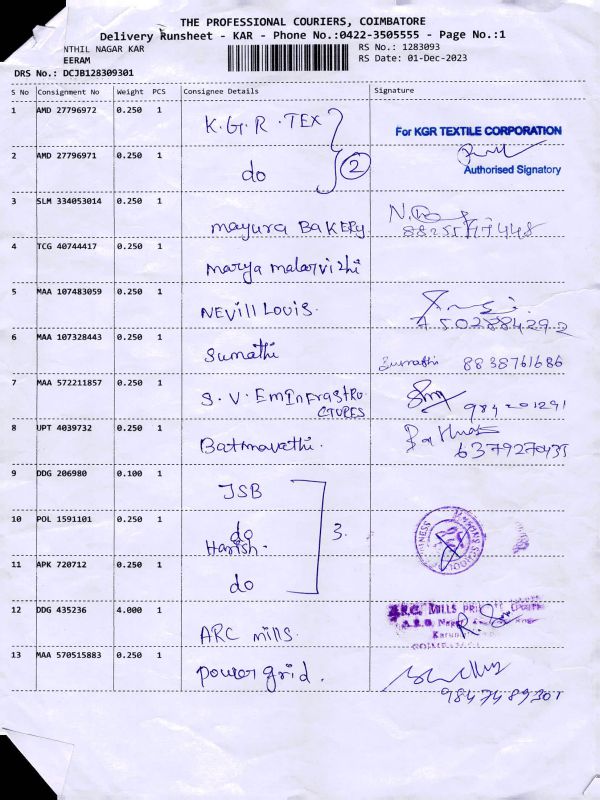 THE PROFESSIONAL COURIERS, COIMBATORE
Delivery Runsheet - KAR - Phone No.:0422-3505555 - Page No.:1
NTHIL NAGAR KAR
EERAM
RS No.: 1283093
RS Date: 01-Dec-2023
DRS No.: DCJB128309301
S No Consignment No Weight PCS Consignee Details Signature
1 AMD 27796972 0.250 1 K.G.R. TEX
For KGR TEXTILE CORPORATION
2 AMD 27796971 0.250 1 do 2
Authorised Signatory
3 SLM 334053014 0.250 1 mayura BAKERY
4 TCG 40744417 0.250 1 marya malarvizhi
5 MAA 107483059 0.250 1 NEVill LOUIS.
6 MAA 107328443 0.250 1 Sumathi 8838761686
7 MAA 572211857 0.250 1 S.V. EmInfrastru
CTURES
8 UPT 4039732 0.250 1 Batmavathi.
9 DDG 206980 0.100 1 JSB
10 POL 1591101 0.250 1 do 3.
Harish.
11 APK 720712 0.250 1 do
12 DDG 435236 4.000 1 ARC mills.
MILLS
13 MAA 570515883 0.250 1 power grid.